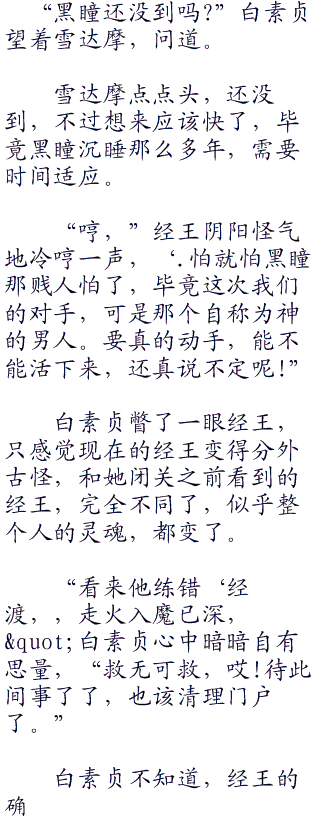 “黑瞳还没到吗?”白素贞
望着雪达摩，问道。
雪达摩点点头，还没
到，不过想来应该快了，毕
竟黑瞳沉睡那么多年，需要
时间适应。
“哼，”经王阴阳怪气
地冷哼一声，‘.怕就怕黑瞳
那贱人怕了，毕竟这次我们
的对手，可是那个自称为神
的男人。要真的动手，能不
能活下来，还真说不定呢!”
白素贞瞥了一眼经王，
只感觉现在的经王变得分外
古怪，和她闭关之前看到的
经王，完全不同了，似乎整
个人的灵魂，都变了。
“看来他练错‘经
渡，，走火入魔已深，
&quot;白素贞心中暗暗自有
思量，“救无可救，哎!待此
间事了了，也该清理门户
了。”
白素贞不知道，经王的
确